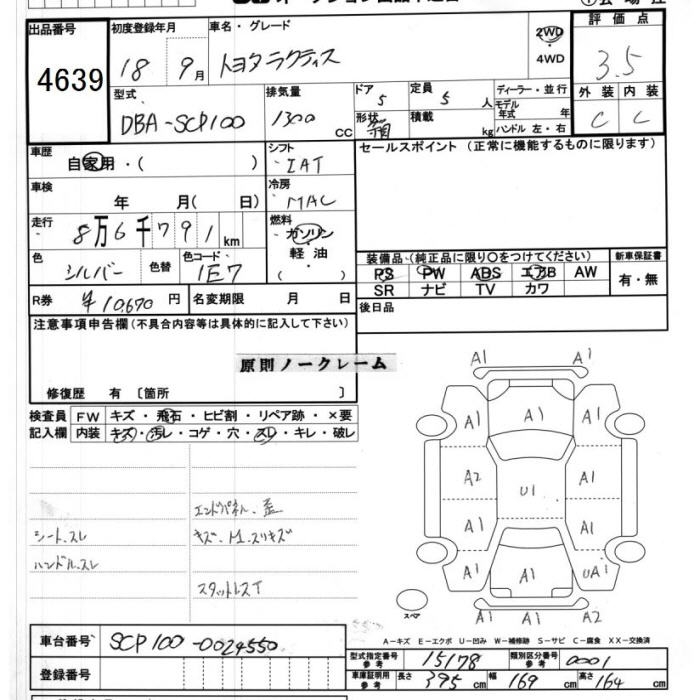 出品番号
4639
初度登録年月
18 9月
車名・グレード
トヨタラクティス
2WD
・
4WD
評 価 点
3.5
外 装 内 装
C C
型式
DBA-SCP100
排気量
1300 cc
ドア
5
定員
5 人
形状
箱
積載
kg
ディーラー・並行
モデル
年式 年
ハンドル 左・右
車歴
自家用・( )
シフト
IAT
セールスポイント (正常に機能するものに限ります)
車検
年 月( 日)
冷房
MAC
走行
8万6千791km
燃料
ガソリン
軽油
・
( )
色
シルバー
色替
色コード
1E7
装備品 (純正品に限り○をつけてください)
新車保証書
PS PW ABS エアB AW
有・無
SR ナビ TV カワ
R券
¥10,670 円
名変期限 月 日
後日品
注意事項申告欄(不具合内容等は具体的に記入して下さい)
原則ノークレーム
修復歴 有 〔箇所 〕
検査員
記入欄
FW キズ・飛石・ヒビ割・リペア跡・×要
内装 キズ・汚レ・コゲ・穴・スレ・キレ・破レ
エンドパネル、歪
シート、スレ
キズ、M、スリキズ
ハンドル、スレ
スタットレスT
A1 A1
A1 A1 A1
A2 U1 A1
A1 A1
A1 A1 UA1
A1 A1 A2
スペア
A-キズ E-エクボ U-凹み W-補修跡 S-サビ C-腐食 XX-交換済
車台番号
SCP100-0024550
型式指定番号
参考
15178
類別区分番号
参考
0001
登録番号
車庫証明用
参考
長さ
395 cm
幅
169 cm
高さ
164 cm